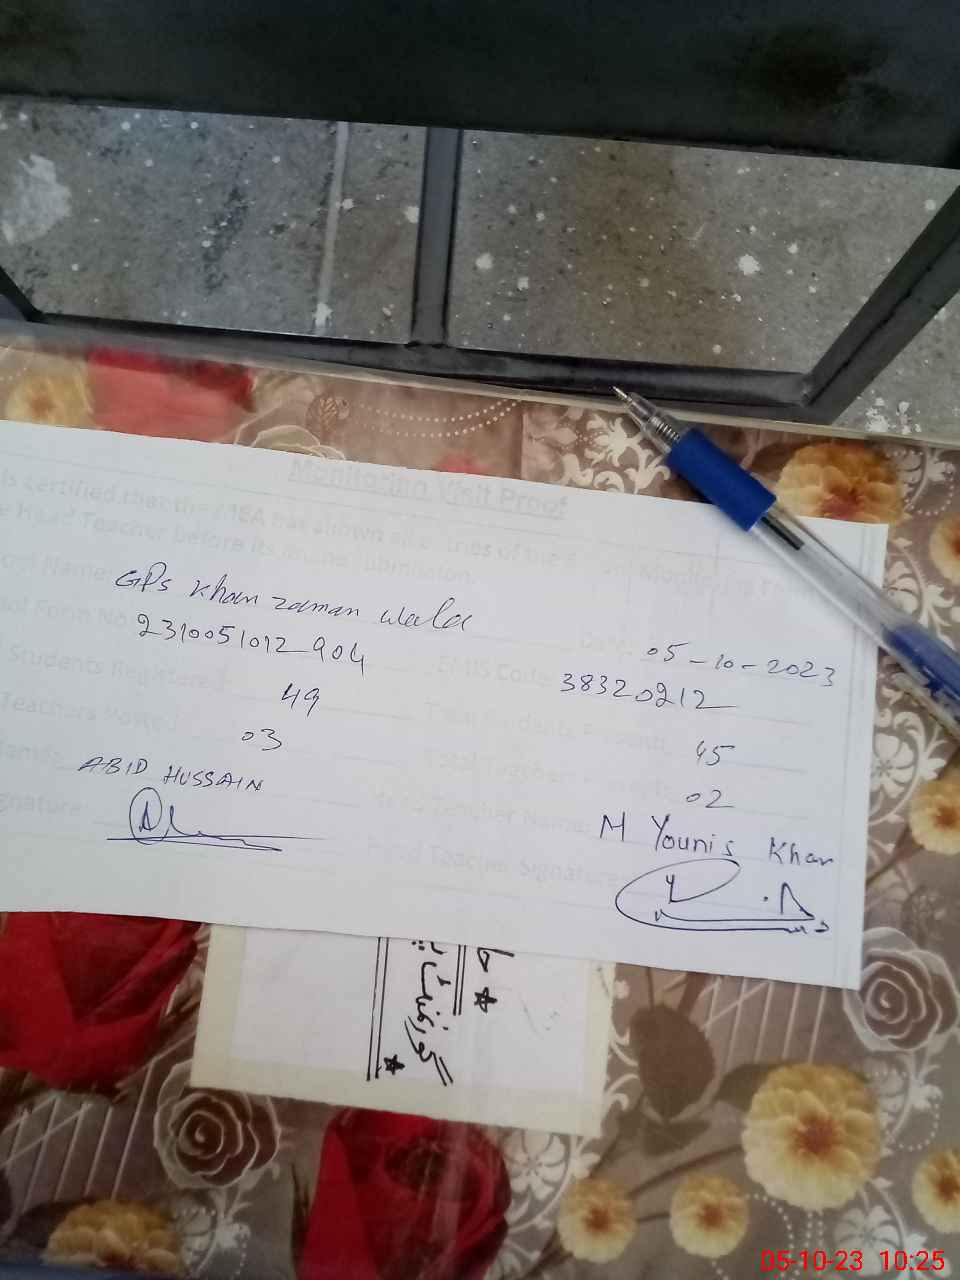 Monitoring Visit Proof
is certified that the MEA has shown all entries of the
Head Teacher before its online submission.
Name: GPS Khan Zaman Wala
Date: 05-10-2023
Form No. 2310051012904 EMIS Code 38320212
Students Registered 49 Total Students Present: 45
Teachers Posted 03 Total Teachers Present: 02
Name: ABID HUSSAIN Head Teacher Name: M Younis Khan
Signature: Head Teacher Signature:
گورنمنٹ
05-10-23 10:25